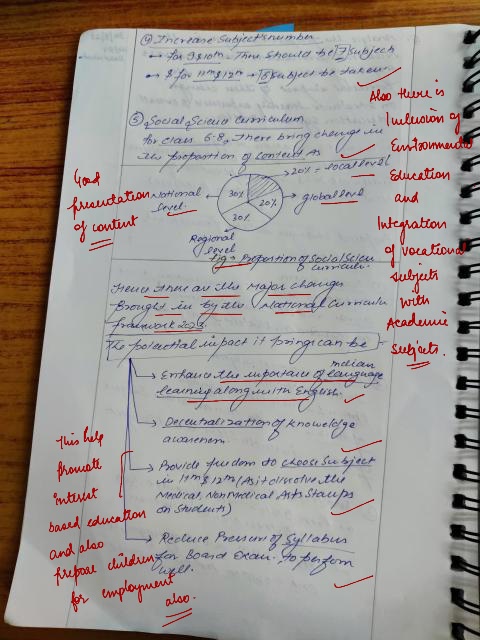 ④ Increase Subject's number
→ for 9&10th. There should be [7] subject
→ & for 11th & 12th → [6] Subject be taken
⑤ Social Science Curriculum
for class 6-8, There bring change in
the proportion of content As
20% = local level
National level
30%
20%
global level
30%
Regional level
fig → Proportion of Social Scien
curriculum.
Hence these are the Major changes
Brought in by the National Curriculu
framework 2023.
The potential impact it brings can be -
Indian
→ Enhance the importance of language
learning along with English.
→ Decentralization of knowledge
awareness
→ Provide freedom to choose subject
in 11th & 12th (As it dissolve the
Medical, Non Medical Arts Stamps
on Students)
→ Reduce Pressure of Syllabus
for Board Exam. to perform
well.
Good
presentation
of content
Also there is
Inclusion of
Environmental
Education
and
Integration
of vocational
subjects
with
Academic
subjects.
This help
promote
interest
based education
and also
prepare children
for employment
also.